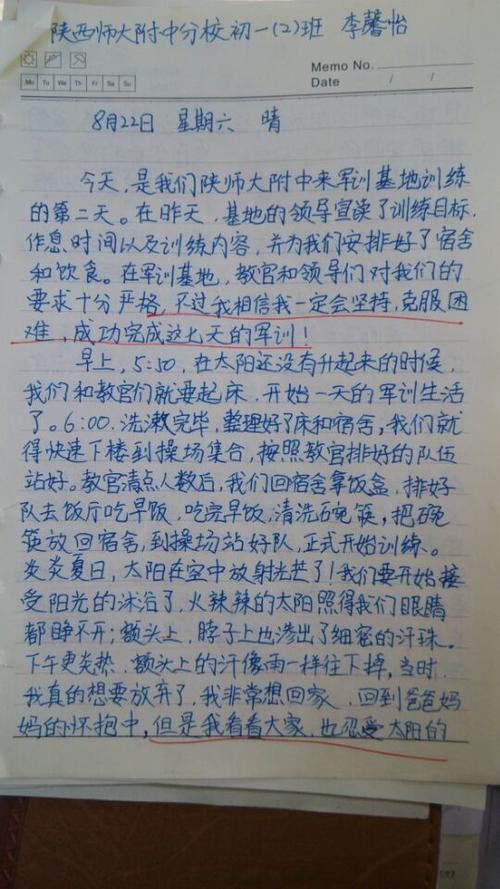 陕西师大附中分校初一(2)班 李馨怡
Memo No.
Mo Tu We Th Fr Sa Su
Date / /
8月22日 星期六 晴
今天,是我们陕师大附中来军训基地训练
的第二天。在昨天,基地的领导宣读了训练目标,
作息时间以及训练内容,并为我们安排好了宿舍
和饮食。在军训基地,教官和领导们对我们的
要求十分严格,不过我相信我一定会坚持,克服困
难,成功完成这七天的军训!
早上,5:50,在太阳还没有升起来的时候,
我们和教官们就要起床,开始一天的军训生活
了。6:00,洗漱完毕,整理好了床和宿舍,我们就
得快速下楼到操场集合,按照教官排好的队伍
站好。教官清点人数后,我们回宿舍拿饭盒,排好
队去饭厅吃早饭,吃完早饭,清洗碗筷,把碗
筷放回宿舍,到操场站好队,正式开始训练。
炎炎夏日,太阳在空中放射光芒了!我们要开始接
受阳光的沐浴了,火辣辣的太阳照得我们眼睛
都睁不开;额头上,脖子上也渗出了细密的汗珠。
下午更炎热,额头上的汗像雨一样往下掉,当时,
我真的想要放弃了,我非常想回家,回到爸爸妈
妈的怀抱中,但是我看看大家,也忍受太阳的